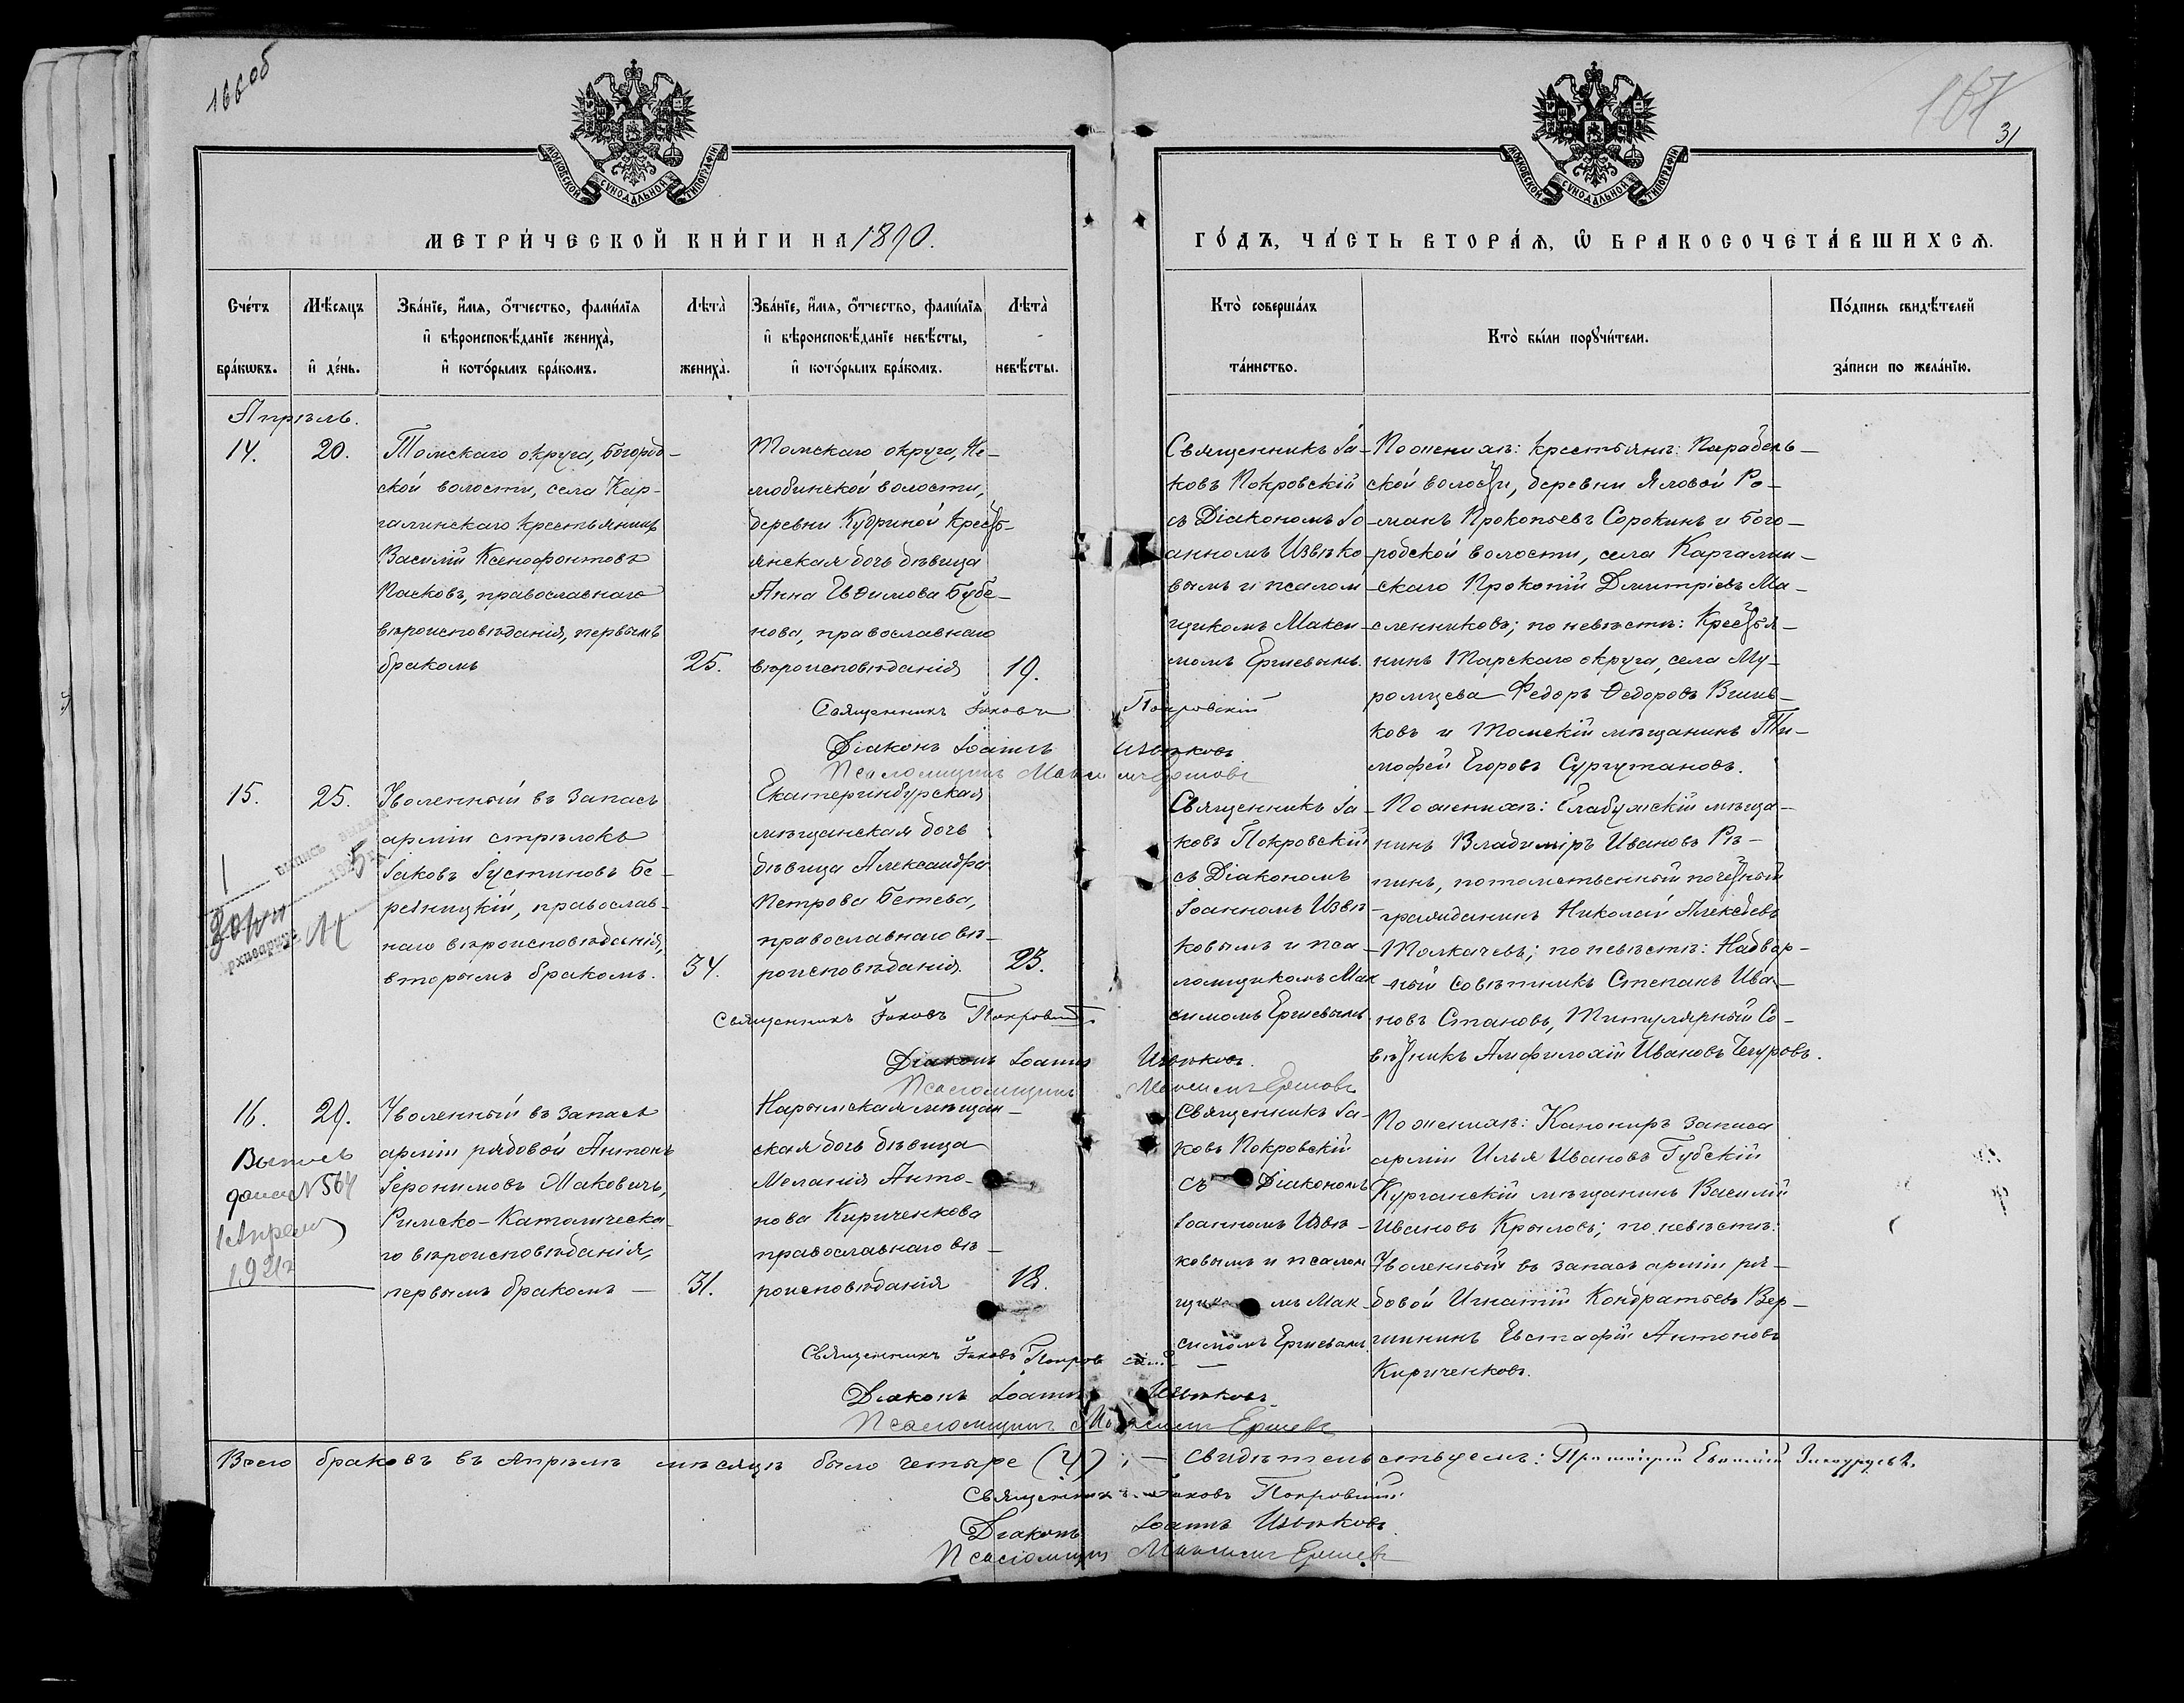 166об
167
31
МОСКОВСКОЙ СѴНОДАЛЬНОЙ ТИПОГРАФІИ
МОСКОВСКОЙ СѴНОДАЛЬНОЙ ТИПОГРАФІИ
МЕТРИ́ЧЕСКОЙ КНИ́ГИ НА 1890.
ГО́ДЪ, ЧА́СТЬ ВТОРА́Я, Ѡ БРАКОСОЧЕТА́ВШИХСЯ.
Сче́тъ бра́кωвъ.
Мѣ́сяцъ и҆ де́нь.
Зва́нїе, и҆́мя, о҆́тчество, фами́лїя
и҆ вѣроисповѣ́данїе жениха̀,
и҆ кото́рымъ бра́комъ.
Лѣта̀ жениха̀.
Зва́нїе, и҆́мя, о҆́тчество, фами́лїя
и҆ вѣроисповѣ́данїе невѣ́сты,
и҆ кото́рымъ бра́комъ.
Лѣта̀ невѣ́сты.
Кто̀ соверша́лъ та́инство.
Кто̀ бы́ли порꙋчи́тели.
По́дпись свидѣ́телей за́писи по жела́нїю.
Апрѣль.
14.
20.
Томскаго округа, Богород-
ской волости, села Кар-
галинскаго крестьянинъ
Василій Ксенофонтовъ
Пасковъ, православнаго
вѣроисповѣданія, первымъ
бракомъ
25.
Томскаго округа, Не-
любинской волости,
деревни Кудриной крестъ-
янская дочь дѣвица
Анна Евѳимова Бубе-
нова, православнаго
вѣроисповѣданія
19.
Священникъ Іа-
ковъ Покровскій
съ Діакономъ Іо-
анномъ Извѣко-
вымъ и псалом-
щикомъ Макси-
момъ Ершевымъ.
По женихѣ: крестьяне: Парабель-
ской волости, деревни Яловой Ро-
манъ Прокопьевъ Сорокинъ и Бого-
родской волости, села Каргалин-
скаго Прокопій Димитріевъ Ма-
сленниковъ; по невѣстѣ: Крестья-
нинъ Тарскаго округа, села Му-
ромцева Федоръ Ѳедоровъ Вишн-
ковъ и Томскій мѣщанинъ Ти-
мофей Егоровъ Сургутановъ.
Священникъ Іаковъ Покровскій
Діаконъ Іоаннъ Извѣковъ
Псаломщикъ Максимъ Ершовъ
15.
25.
Уволенный въ запасъ
арміи стрѣлокъ
Іаковъ Іустиновъ Бе-
резницкій, православ-
наго вѣроисповѣданія,
вторымъ бракомъ.
34.
Екатеринбурская
мѣщанская дочь
дѣвица Александра
Петрова Бетева,
православнаго вѣ-
роисповѣданія.
23.
Священникъ Іа-
ковъ Покровскій
съ Діакономъ
Іоанномъ Извѣ-
ковымъ и пса-
ломщикомъ Мак-
симомъ Ершевымъ
По женихѣ: Елабужскій мѣща-
нинъ Владиміръ Ивановъ Рѣ-
пинъ, потомственный почетный
гражданинъ Николай Алексѣевъ
Толкачевъ; по невѣстѣ: Надвор-
ный Совѣтникъ Степанъ Ива-
новъ Становъ, Титулярный Со-
вѣтникъ Амфилохій Ивановъ Чегуровъ.
выпись
1925
Архиваріусъ
Священникъ Іаковъ Покровскій
Діаконъ Іоаннъ Извѣковъ.
Псаломщикъ Максимъ Ершовъ
16.
29.
Выпись
дана №564
1 Апреля
192
Уволенный въ запасъ
арміи рядовой Антонъ
Іеронимовъ Маковичъ,
Римско-Католическа-
го вѣроисповѣданія,
первымъ бракомъ —
31.
Нарымская мѣщан-
ская дочь дѣвица
Меланія Анто-
нова Кириченкова
православнаго вѣ-
роисповѣданія
18.
Священникъ Іа-
ковъ Покровскій
съ Діакономъ
Іоанномъ Извѣ-
ковымъ и псалом
щикомъ Мак-
симомъ Ершевымъ.
По женихѣ: Канониръ запаса
арміи Илья Ивановъ Губскій
Курганскій мѣщанинъ Василій
Ивановъ Крыловъ; по невѣстѣ:
Уволенный въ запасъ арміи ря-
довой Игнатій Кондратьевъ Вер-
шининъ Евстафій Антоновъ
Кириченковъ.
Священникъ Іаковъ Покровскій
Діаконъ Іоаннъ Извѣковъ
Псаломщикъ Максимъ Ершевъ
Всего браковъ въ Апрѣлѣ мѣсяцѣ было четыре (4); — свидѣтельствуемъ: Протоіерей Евѳимій
Священникъ Іаковъ Покровскій
Діаконъ Іоаннъ Извѣковъ.
Псаломщикъ Максимъ Ершевъ